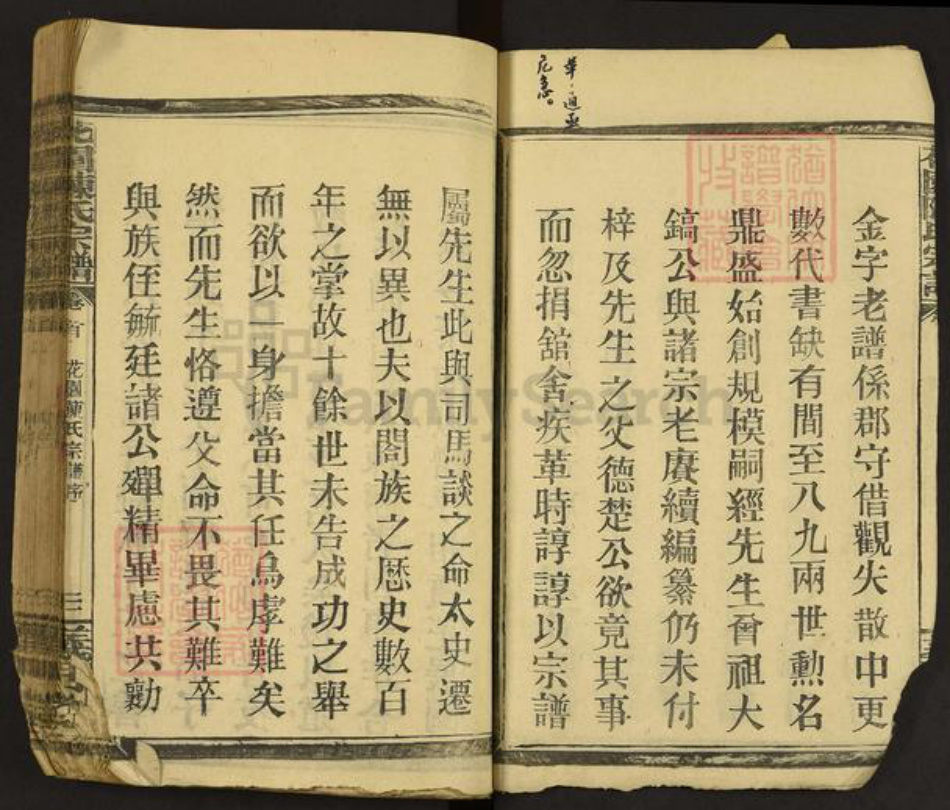 革·通亟
危急。
金字老譜係郡守借觀失散中更
數代書缺有間至八九兩世勳名
鼎盛始創規模嗣經先生曾祖大
鎬公與諸宗老賡續編纂仍未付
梓及先生之父德楚公欲竟其事
而忽捐舘舍疾革時諄諄以宗譜
屬先生此與司馬談之命太史遷
無以異也夫以閤族之歷史數百
年之掌故十餘世未告成功之舉
而欲以一身擔當其任烏虖難矣
然而先生恪遵父命不畏其難卒
與族侄毓廷諸公殫精畢慮共勷
花園陳氏宗譜
卷首
花園陳氏宗譜序
三
FamilySearch